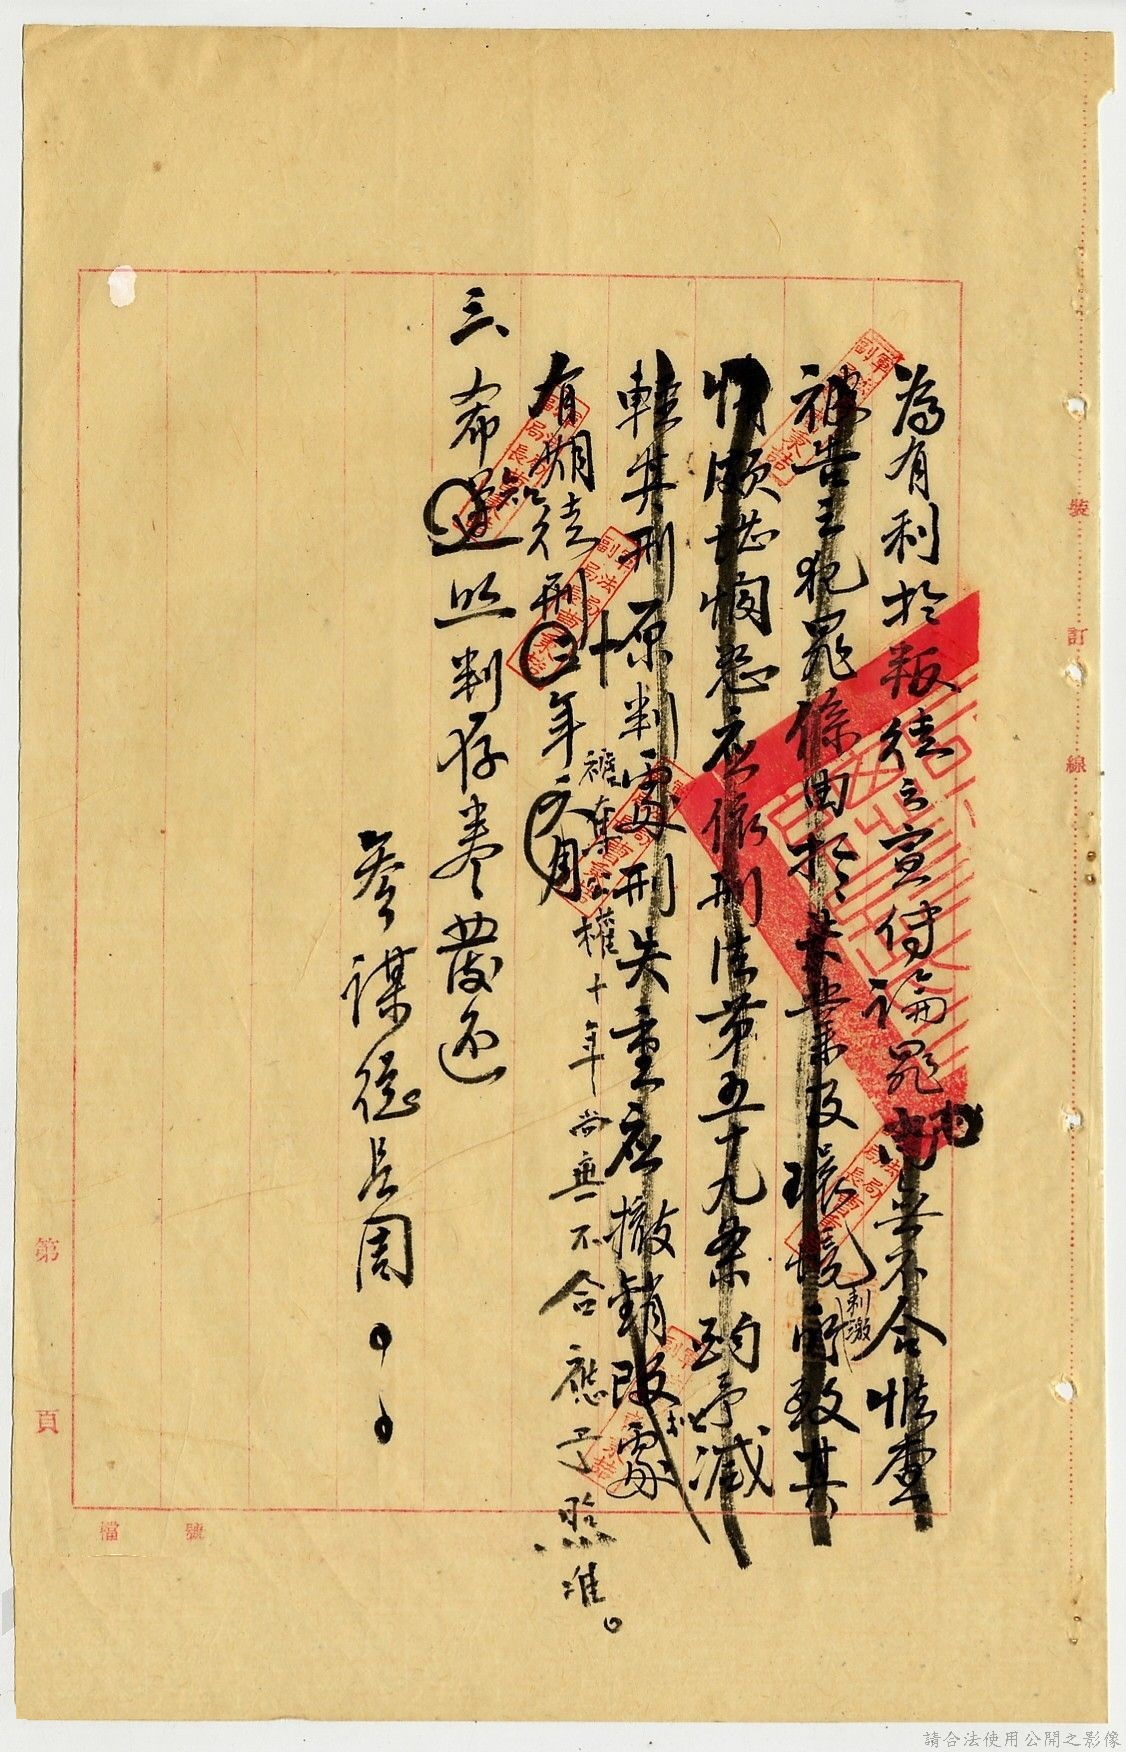 為有利於叛徒之宣傳論罪尚無不合惟查
被告之犯罪係由於失業及環境所致其
刺激
情頗堪憫恕應依刑法第五十九條酌予減
輕其刑原判處刑失重應撤銷改處
有期徒刑十二年六月
褫奪公權十年尚無不合應予照准。
三、希知照判存卷發還
參謀總長周
裝
訂
線
第
頁
檔
號
請合法使用公開之影像